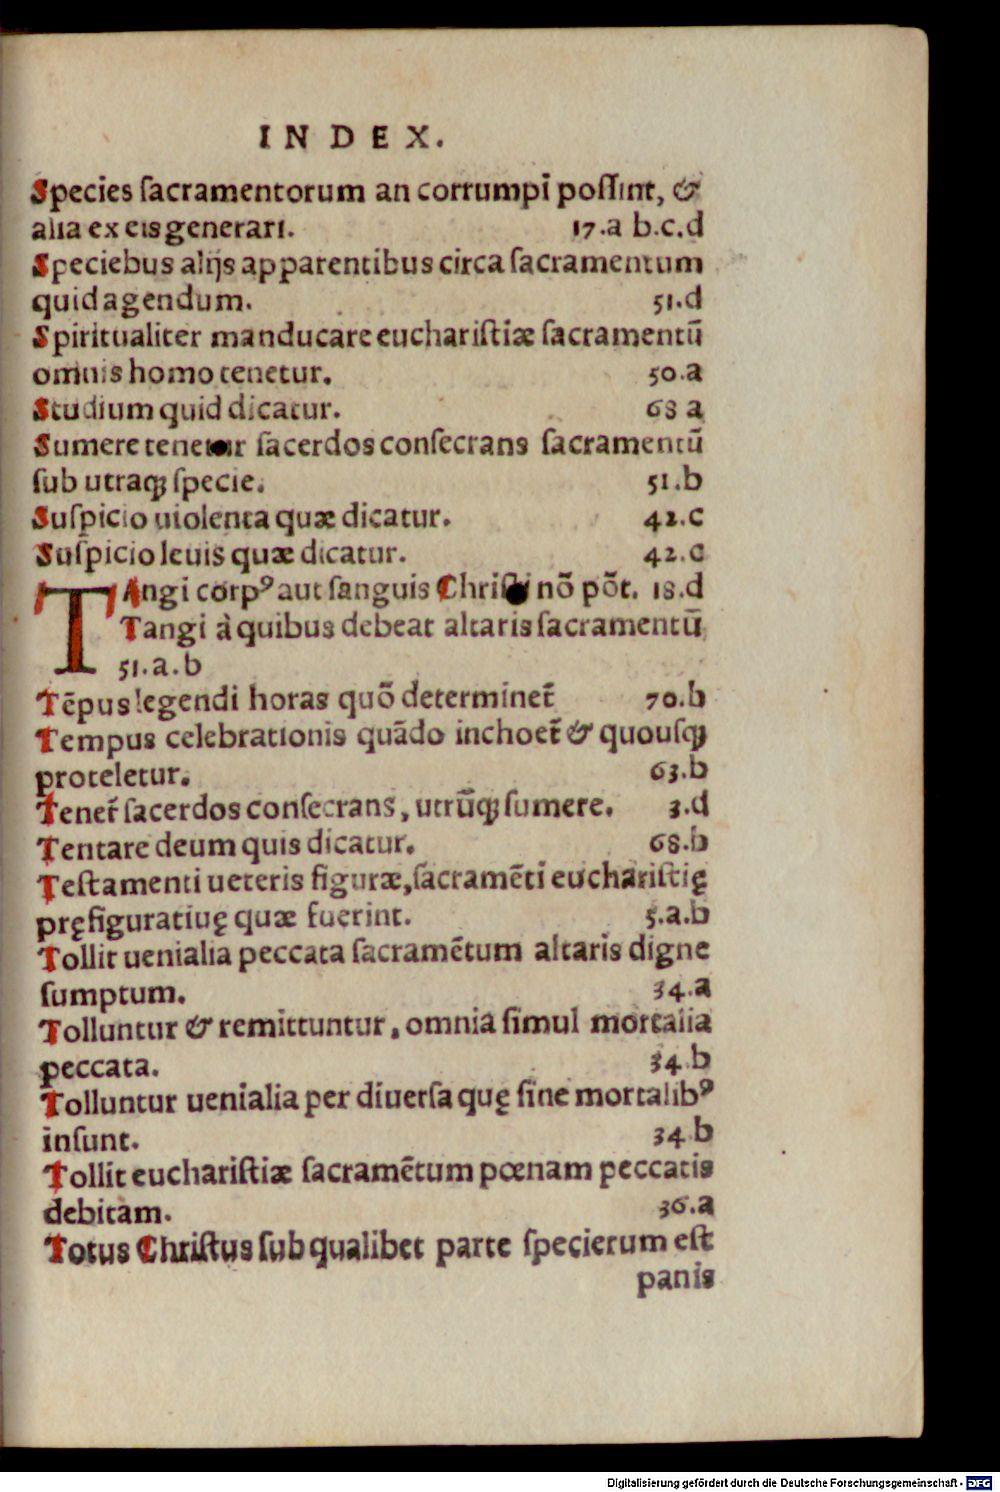 INDEX.
Species ſacramentorum an corrumpi poſſint, &
alia ex eis generari. 17.a b.c.d
Speciebus alijs apparentibus circa ſacramentum
quid agendum. 51.d
Spiritualiter manducare euchariſtiæ ſacramentū
omnis homo tenetur. 50.a
Studium quid dicatur. 68 a
Sumere tenetur ſacerdos conſecrans ſacramentū
ſub utraqꝫ ſpecie. 51.b
Suſpicio uiolenta quæ dicatur. 42.c
Suſpicio leuis quæ dicatur. 42.c
TAngi corpꝰ aut ſanguis Chriſti nō pōt. 18.d
Tangi à quibus debeat altaris ſacramentū
51.a.b
Tēpus legendi horas quō determinet᷑ 70.b
Tempus celebrationis quādo inchoet᷑ & quouſqꝫ
proteletur. 63.b
Tenet᷑ ſacerdos conſecrans, utrūqꝫ ſumere. 3.d
Tentare deum quis dicatur. 68.b
Teſtamenti ueteris figuræ, ſacramēti euchariſtię
pręfiguratiuę quæ fuerint. 5.a.b
Tollit uenialia peccata ſacramētum altaris digne
ſumptum. 34.a
Tolluntur & remittuntur, omnia ſimul mortalia
peccata. 34 b
Tolluntur uenialia per diuerſa quę ſine mortalibꝰ
inſunt. 34 b
Tollit euchariſtiæ ſacramētum pœnam peccatis
debitam. 36.a
Totus Chriſtus ſub qualibet parte ſpecierum eſt
panis
Digitalisierung gefördert durch die Deutsche Forschungsgemeinschaft - DFG